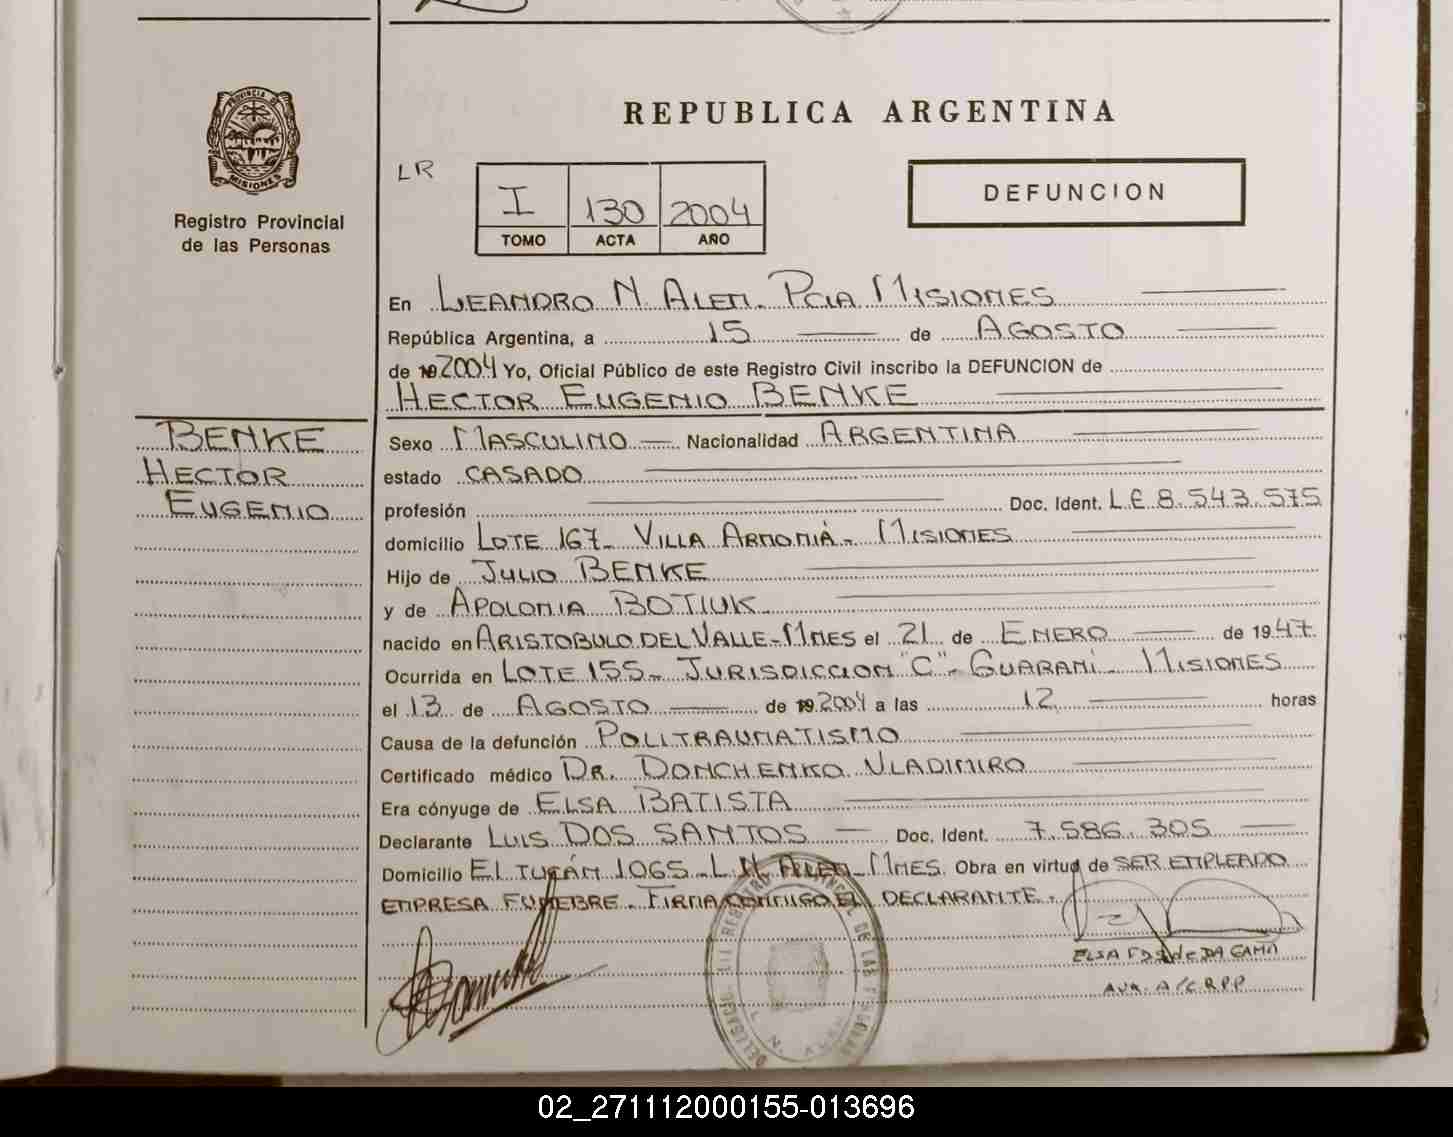 PROVINCIA DE
MISIONES
Registro Provincial
de las Personas
REPUBLICA ARGENTINA
LR
I 130 2004
TOMO ACTA AÑO
DEFUNCION
En LEANDRO N. ALEM. PCIA MISIONES
República Argentina, a 15 de AGOSTO
de 19 2004 Yo, Oficial Público de este Registro Civil inscribo la DEFUNCION de
HECTOR EUGENIO BENKE
BENKE
HECTOR
EUGENIO
Sexo MASCULINO Nacionalidad ARGENTINA
estado CASADO
profesión Doc. Ident. L.E 8.543.575
domicilio LOTE 167- VILLA ARMONIA- MISIONES
Hijo de JULIO BENKE
y de APOLONIA BOTIUK
nacido en ARISTOBULO DEL VALLE-MNES el 21 de ENERO de 1947.
Ocurrida en LOTE 155- JURISDICCION "C"- GUARANI- MISIONES
el 13 de AGOSTO de 19 2004 a las 12 horas
Causa de la defunción POLITRAUMATISMO
Certificado médico DR. DONCHENKO VLADIMIRO
Era cónyuge de ELSA BATISTA
Declarante LUIS DOS SANTOS Doc. Ident. 7.586.305
Domicilio EL TUCÁN 1065- L.N. ALEM- MNES. Obra en virtud de SER EMPLEADO
EMPRESA FUNEBRE. FIRMA CONMIGO EL DECLARANTE.
ELSA de DA GAMA
A/C R.P.P
REGISTRO PROVINCIAL DE LAS PERSONAS
02_271112000155-013696